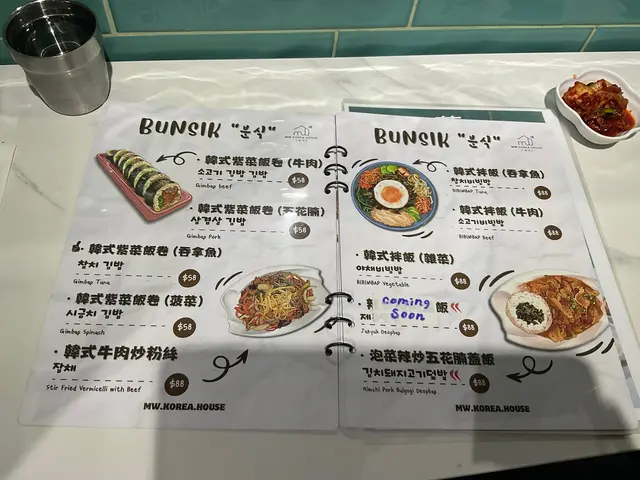 BUNSIK "분식"
MW.KOREA.HOUSE
韓式紫菜飯卷 (牛肉)
소고기 김밥 김밥
Gimbap Beef
$58
韓式紫菜飯卷 (五花腩)
삼겹살 김밥
Gimbap Pork
$58
韓式紫菜飯卷 (吞拿魚)
참치 김밥
Gimbap Tuna
$58
韓式紫菜飯卷 (菠菜)
시금치 김밥
Gimbap Spinach
$58
韓式牛肉炒粉絲
잡채
Stir Fried Vermicelli with Beef
$88
MW.KOREA.HOUSE
BUNSIK "분식"
MW.KOREA.HOUSE
韓式拌飯 (吞拿魚)
참치비빔밥
BIBIMBAP Tuna
$88
韓式拌飯 (牛肉)
소고기비빔밥
BIBIMBAP Beef
$88
韓式拌飯 (雜菜)
야채비빔밥
BIBIMBAP Vegetable
$88
coming 飯
제 Soon
Jeyuk Deopbap
$88
泡菜辣炒五花腩蓋飯
김치돼지고기덮밥
Kimchi Pork Bulgogi Deopbap
$88
MW.KOREA.HOUSE